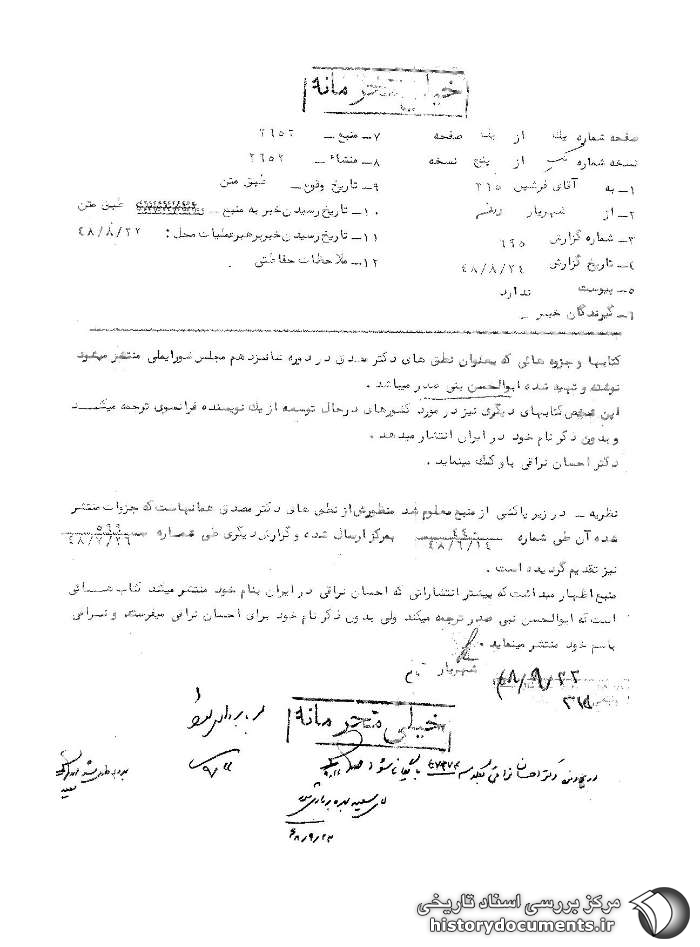 خیلی محرمانه
صفحه شماره یک از یک صفحه
نسخه شماره از پنج نسخه
۱ــ به آقای فرشین ۳۶۵
۲ــ از شهریار
۳ــ شماره گزارش ۶۹۵
۴ــ تاریخ گزارش ۴۸/۸/۲۴
۵ــ پیوست ندارد
۶ــ گیرندگان خبر ــ
۷ــ منبع ــ ۲۶۵۲
۸ــ منشاء ــ ۲۶۵۲
۹ــ تاریخ وقوع ــ طبق متن
۱۰ــ تاریخ رسیدن خبر به منبع ــ طبق متن
۱۱ــ تاریخ رسیدن خبر برهبر عملیات محل : ۴۸/۸/۲۲
۱۲ــ ملاحظات حفاظتی
کتابها و جزوه هائی که بعنوان نطق های دکتر مصدق در دوره شانزدهم مجلس شورایملی منتشر میشود
نوشته و تهیه شده ابوالحسن بنی صدر میباشد .
این شخص کتابهای دیگری نیز در مورد کشورهای درحال توسعه از یک نویسنده فرانسوی ترجمه میکند
و بدون ذکر نام خود در ایران انتشار میدهد .
دکتر احسان نراقی باو کمک مینماید .
نظریه ــ در زیر پاکشی از منبع معلوم شد منظورش از نطق های دکتر مصدق همانهاست که جزوات منتشر
شده آن طی شماره ۴۸/۶/۱۴ بمرکز ارسال شده و گزارش دیگری طی شماره ۴۸/۷/۲۶
نیز تقدیم گردیده است .
منبع اظهار میداشت که بیشتر انتشاراتی که احسان نراقی در ایران بنام خود منتشر میکند کتاب هائی
است که ابوالحسن بنی صدر ترجمه میکند ولی بدون ذکر نام خود برای احسان نراقی میفرستد و نراقی
باسم خود منتشر مینماید .
شهریار
۴۸/۹/۲۲
خیلی محرمانه
در پرونده دکتر احسان نراقی بایگانی شود
۴۸/۹/۲۳
مرکز بررسی اسناد تاریخی
historydocuments.ir